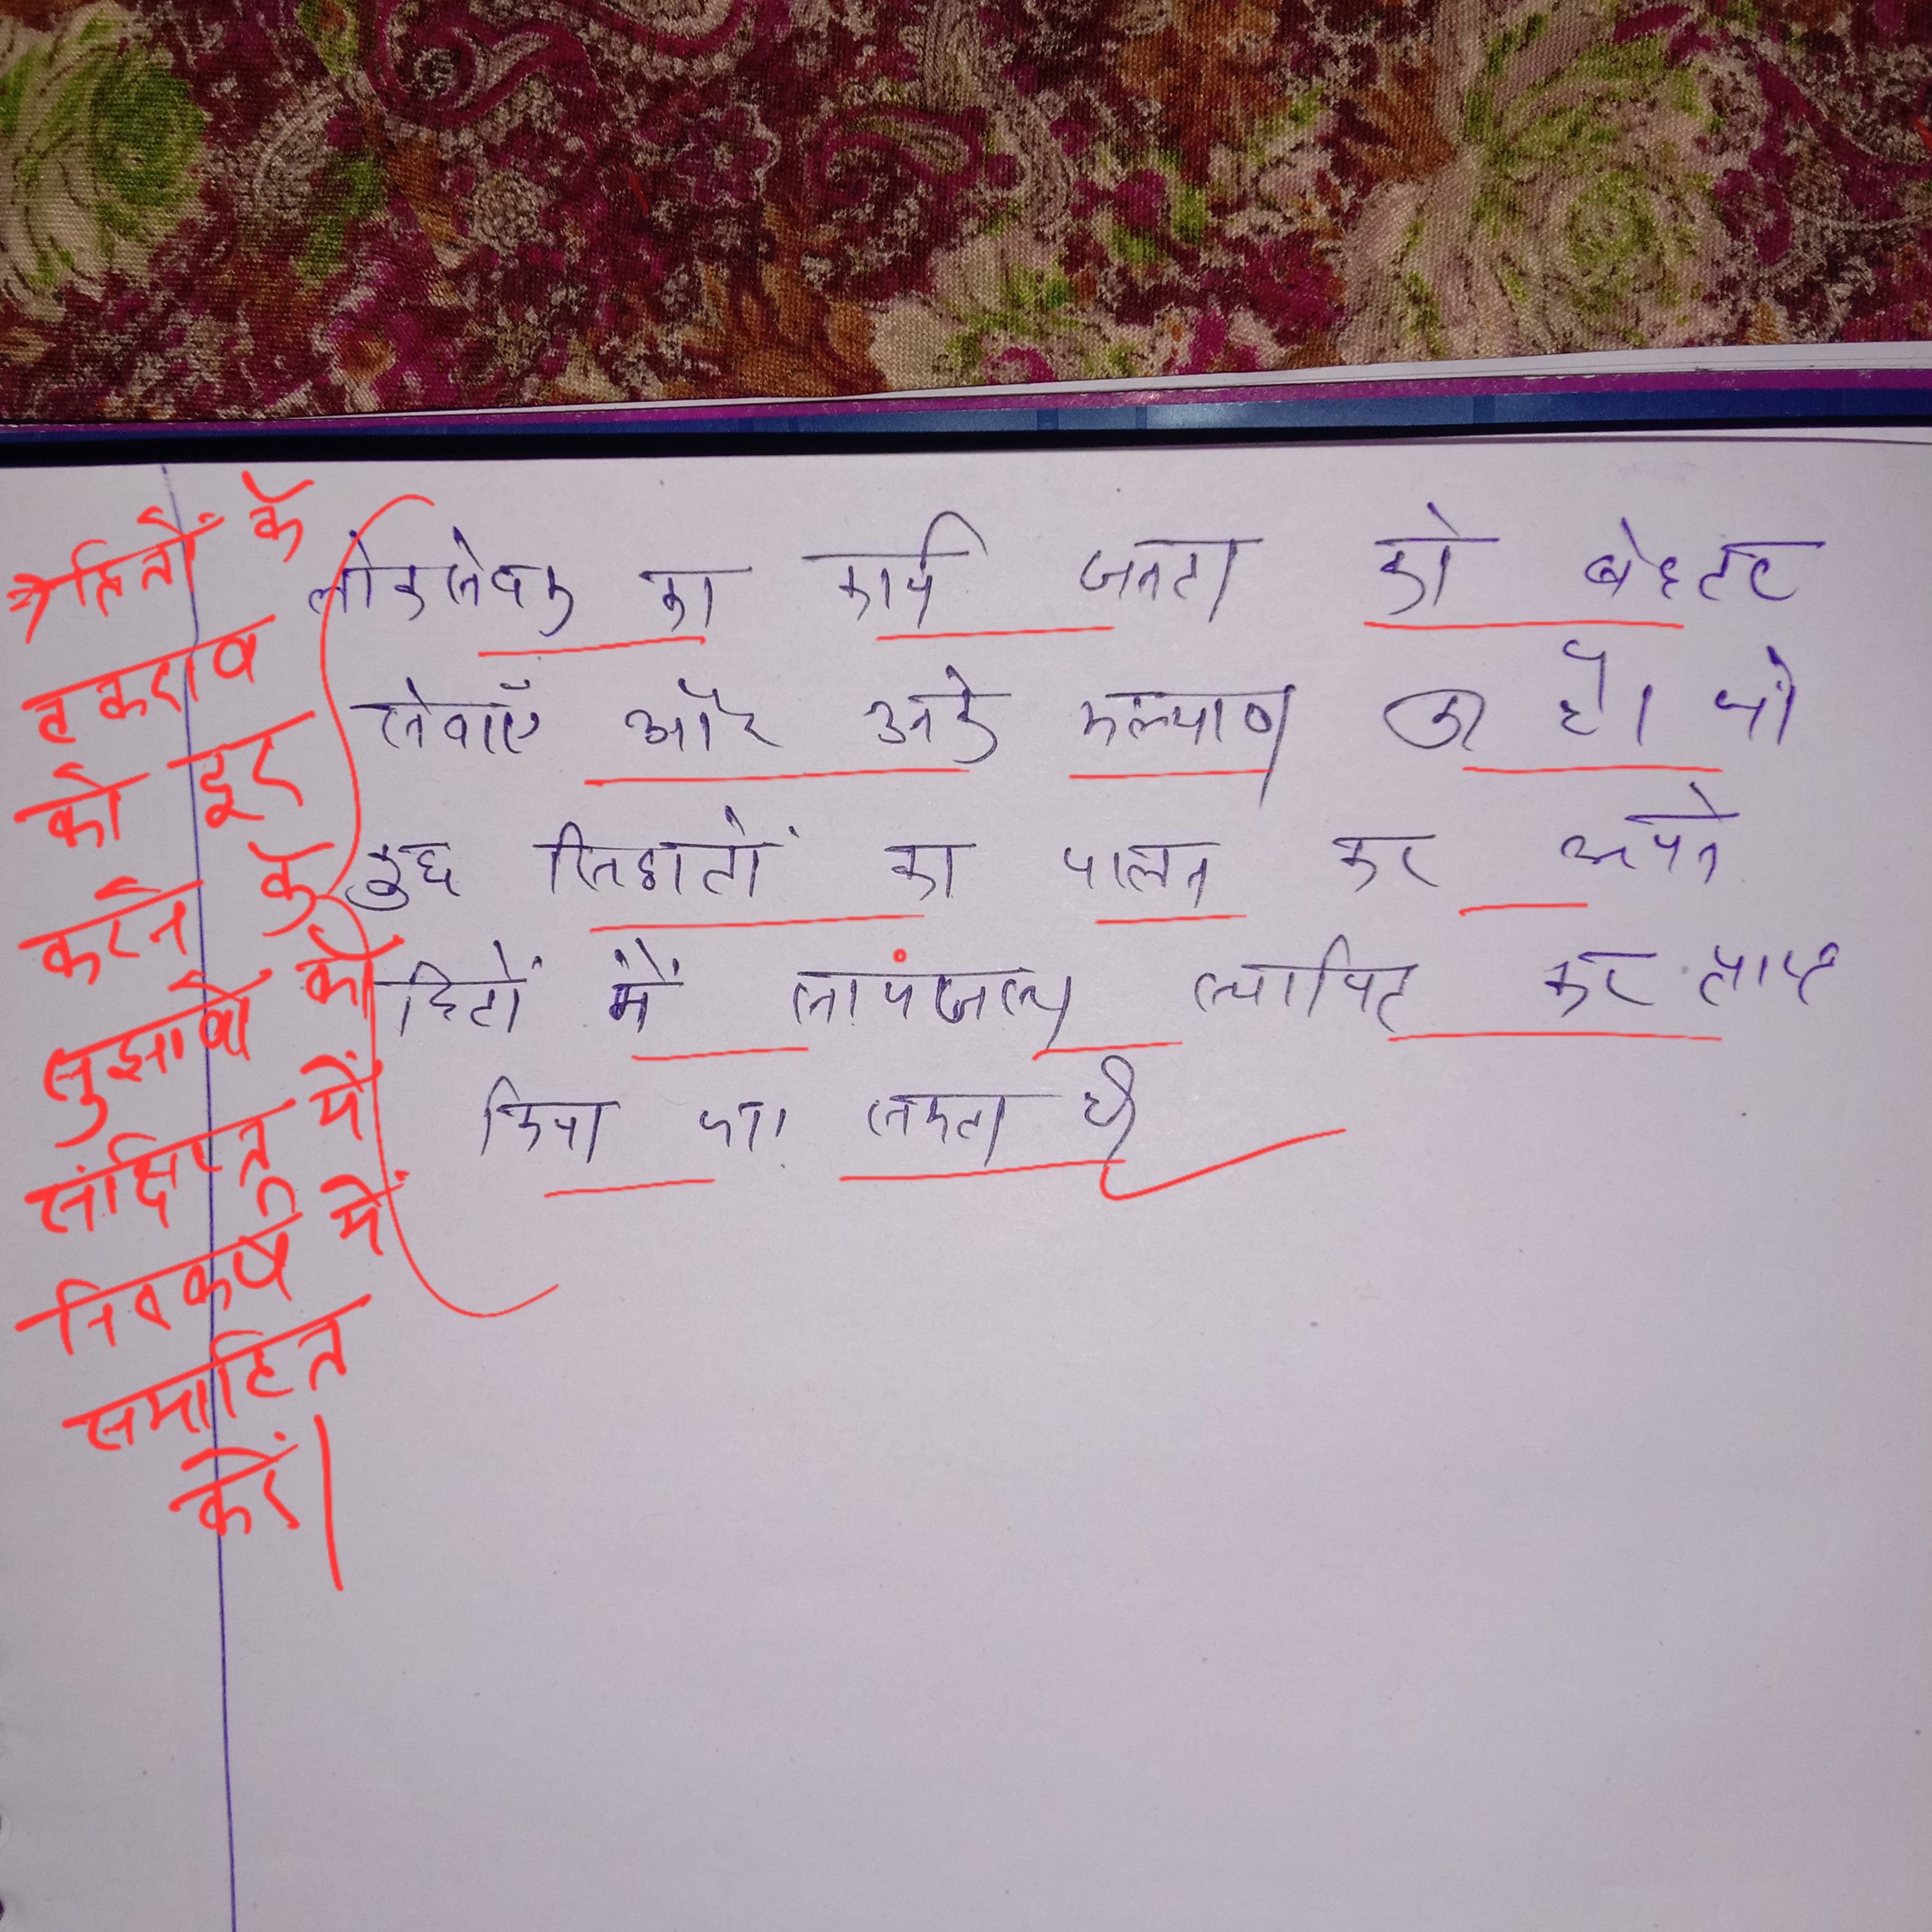 → हितों के
टकराव
को दूर
करने के
सुझावों को
संक्षिप्त में
निष्कर्ष में
समाहित
करें।
लोकसेवक का कार्य जनता को बेहतर
सेवाएँ और उनके कल्याण का है। जो
कुछ सिद्धातों का पालन कर अपने
हितों में सामंजस्य स्थापित कर
किया जा सकता है